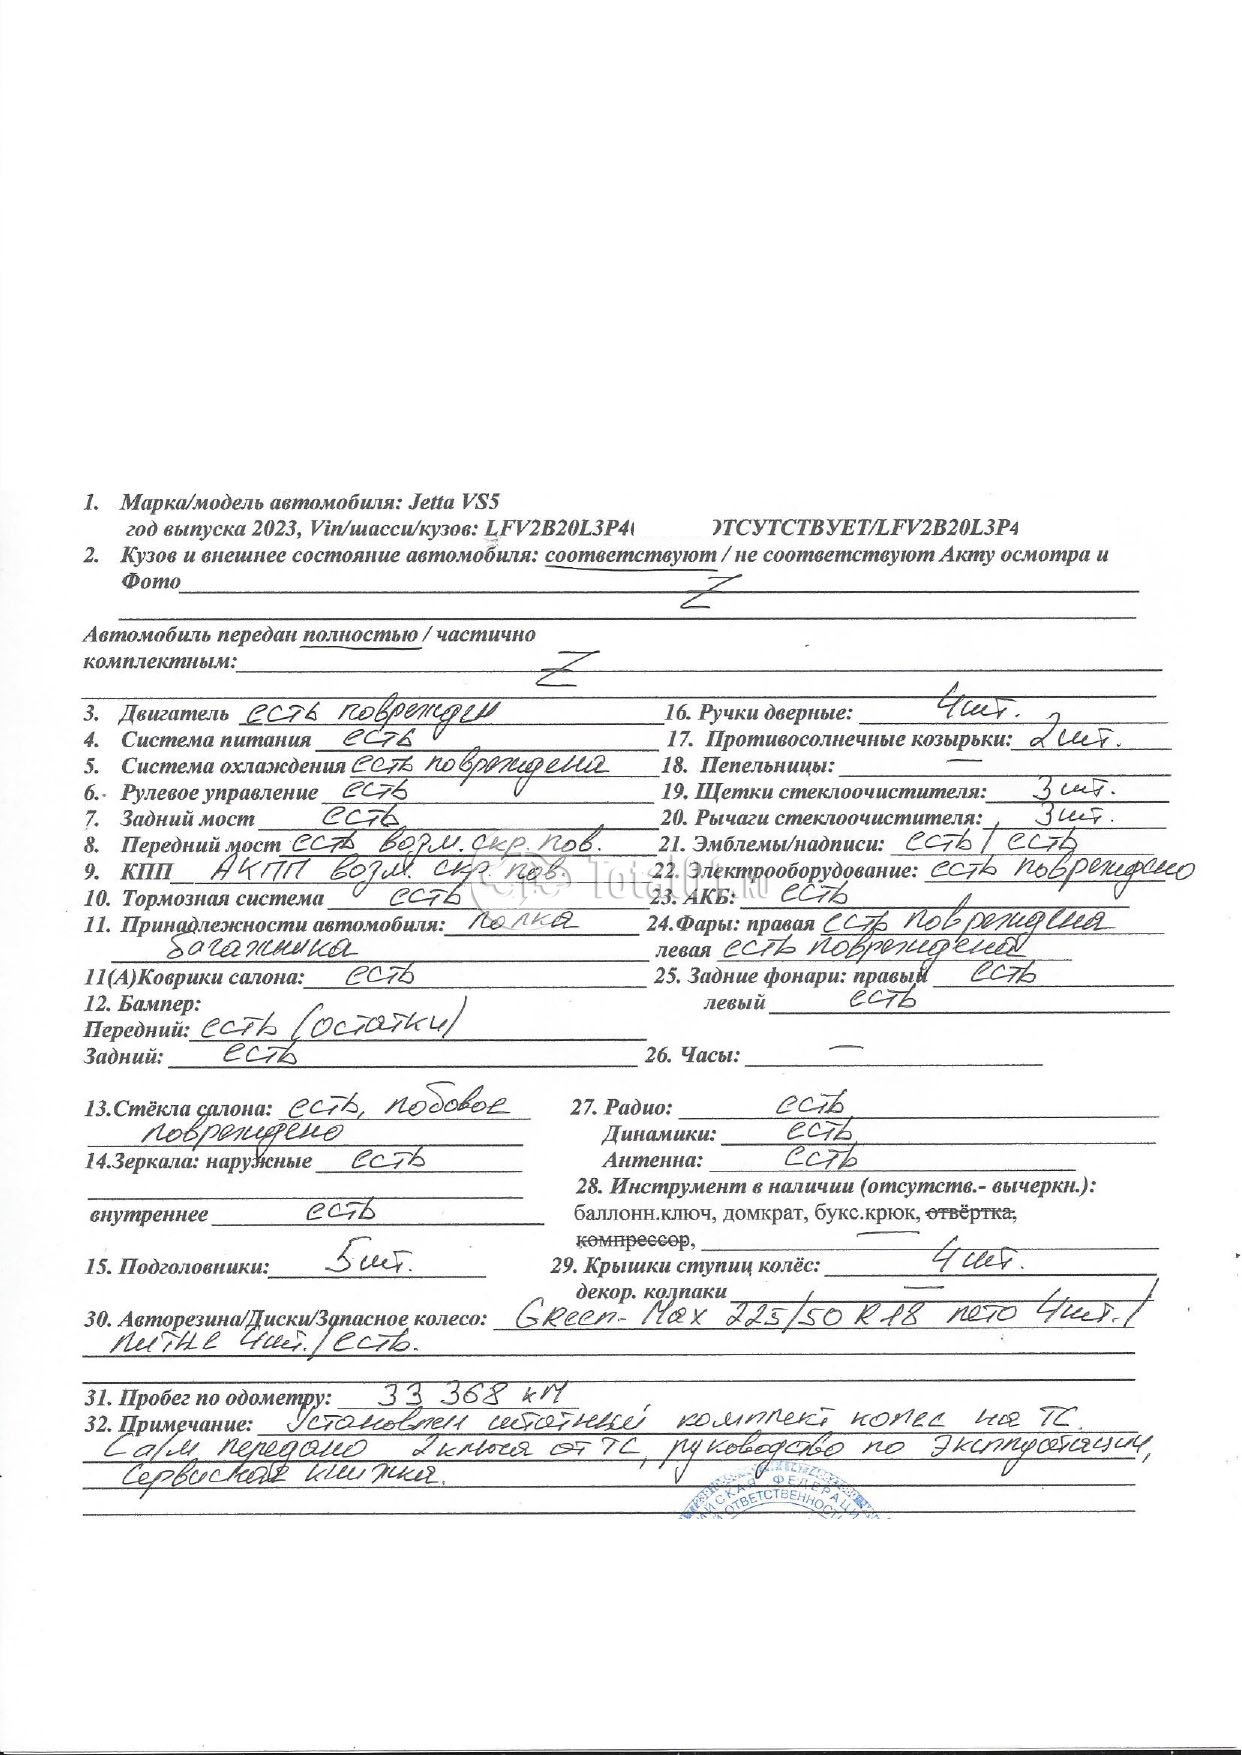 1. Марка/модель автомобиля: Jetta VS5
год выпуска 2023, Vin/шасси/кузов: LFV2B20L3P4( ОТСУТСТВУЕТ/LFV2B20L3P4
2. Кузов и внешнее состояние автомобиля: соответствуют / не соответствуют Акту осмотра и
Фото Z
Автомобиль передан полностью / частично
комплектным: Z
3. Двигатель есть поврежден 16. Ручки дверные: 4 шт.
4. Система питания есть 17. Противосолнечные козырьки: 2 шт.
5. Система охлаждения есть повреждена 18. Пепельницы: —
6. Рулевое управление есть 19. Щетки стеклоочистителя: 3 шт.
7. Задний мост есть 20. Рычаги стеклоочистителя: 3 шт.
8. Передний мост есть возм. скр. пов. 21. Эмблемы/надписи: есть / есть
9. КПП АКПП возм. скр. пов. 22. Электрооборудование: есть повреждено
Total01.RU
10. Тормозная система есть 23. АКБ: есть
11. Принадлежности автомобиля: полка 24.Фары: правая есть повреждена
багажника левая есть повреждена
11(А)Коврики салона: есть 25. Задние фонари: правый есть
12. Бампер: левый есть
Передний: есть (остатки)
Задний: есть 26. Часы: —
13.Стёкла салона: есть, лобовое 27. Радио: есть
повреждено Динамики: есть
14.Зеркала: наружные есть Антенна: есть
28. Инструмент в наличии (отсутств.- вычеркн.):
внутреннее есть баллонн.ключ, домкрат, букс.крюк, отвёртка,
компрессор, —
15. Подголовники: 5 шт. 29. Крышки ступиц колёс: 4 шт.
декор. колпаки —
30. Авторезина/Диски/Запасное колесо: Green-Max 225/50 R18 лето 4 шт./
литые 4 шт./ есть.
31. Пробег по одометру: 33 368 км
32. Примечание: Установлен штатный комплект колес на ТС.
С а/м передано 2 ключа от ТС, руководство по эксплуатации,
сервисная книжка.
ФЕДЕРАЦИ
ОТВЕТСТВЕННОСТ